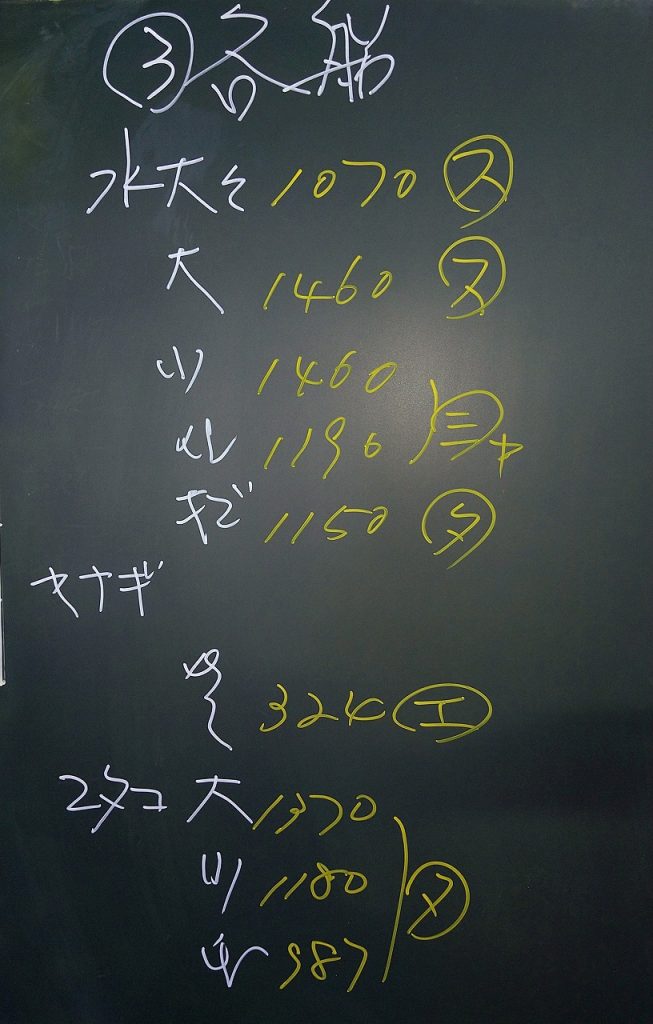 ③各船
水大々 1070 ㋜
大 1460 ㋜
小 1460
1190 ㊂ヤ
1150 ㋟
ヤナギ
324 ㋓
マタコ 大 1370
小 1180 ㋜
987